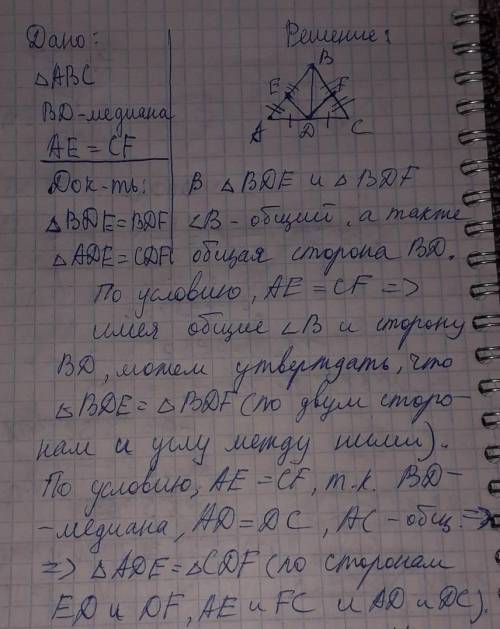 Дано:
Решение:
△ABC
BD-медиана
AE = CF
B
E
F
A
D
C
Док-ть:
△BDE=BDF
△ADE=CDF
В △BDE и △BDF
∠B - общий, а также
общая сторона BD.
По условию, AE = CF =>
имея общие ∠B и сторону
BD, можем утверждать, что
△BDE = △BDF (по двум сторо-
нам и углу между ними).
По условию, AE = CF, т.к. BD-
-медиана, AD=DC, AC - общ. =>
=> △ADE = △CDF (по сторонам
ED и DF, AE и FC и AD и DC).